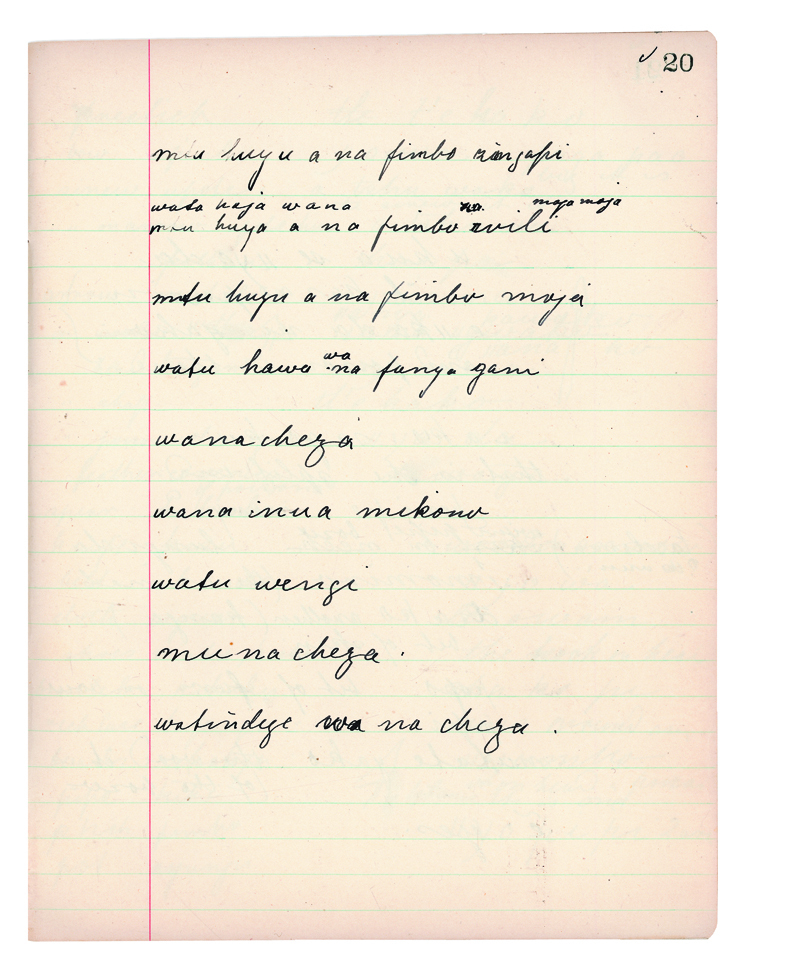 ✓ 20
mtu huyu a na fimbo zingapi
watu haja wana na. moja moja
mtu huyu a na fimbo zvili
mtu huyu a na fimbo moja
wa
watu hawa na fanya gani
wana cheza
wana inua mikono
watu wengi
mu na cheza .
watindege wa na cheza .